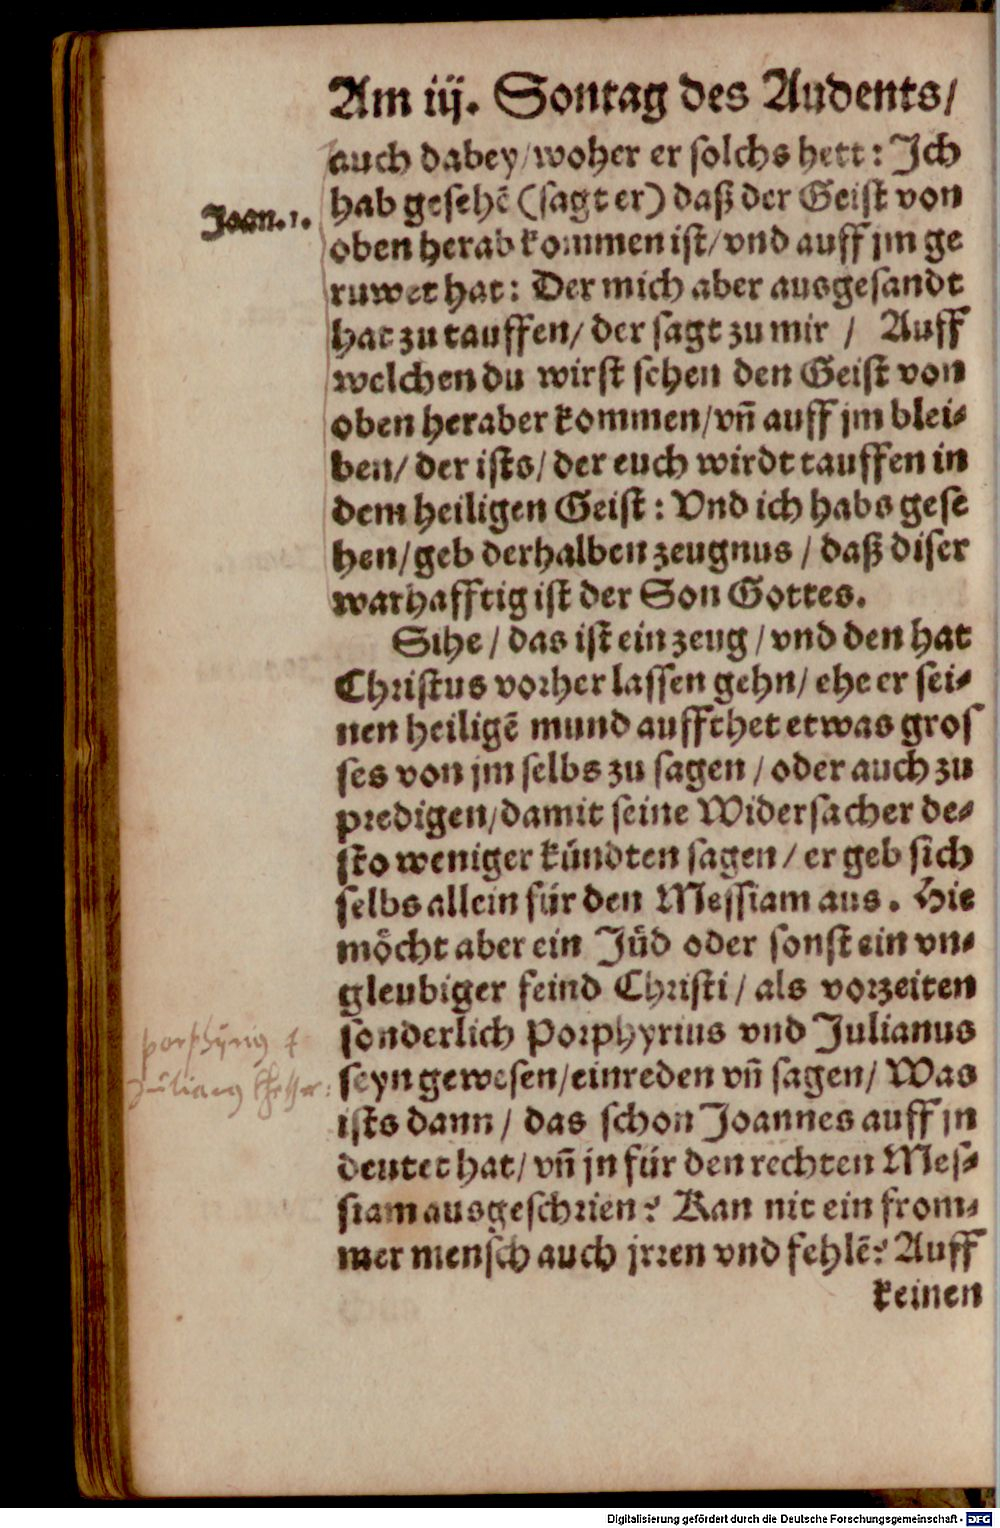 Am iij. Sontag des Audents/
auch dabey/woher er solchs hett: Jch
Joan.1.
hab gesehẽ (sagt er) daß der Geist von
oben herab kommen ist/vnd auff jm ge
ruwet hat: Der mich aber ausgesandt
hat zu tauffen/ der sagt zu mir / Auff
welchen du wirst sehen den Geist von
oben heraber kommen/vñ auff jm blei⸗
ben/ der ists/ der euch wirdt tauffen in
dem heiligen Geist: Vnd ich habs gese
hen/geb derhalben zeugnus / daß diser
warhafftig ist der Son Gottes.
Sihe / das ist ein zeug / vnd den hat
Christus vorher lassen gehn/ ehe er sei⸗
nen heiligẽ mund auffthet etwas gros
ses von jm selbs zu sagen / oder auch zu
predigen/damit seine Widersacher de⸗
sto weniger kündten sagen / er geb sich
selbs allein für den Messiam aus. Hie
möcht aber ein Jüd oder sonst ein vn⸗
gleubiger feind Christi / als vorzeiten
sonderlich Porphyrius vnd Julianus
seyn gewesen/einreden vñ sagen/ Was
ists dann / das schon Joannes auff jn
deutet hat/ vñ jn für den rechten Mes⸗
siam ausgeschrien? Kan nit ein from⸗
mer mensch auch jrren vnd fehlẽ? Auff
keinen
Digitalisierung gefördert durch die Deutsche Forschungsgemeinschaft - DFG